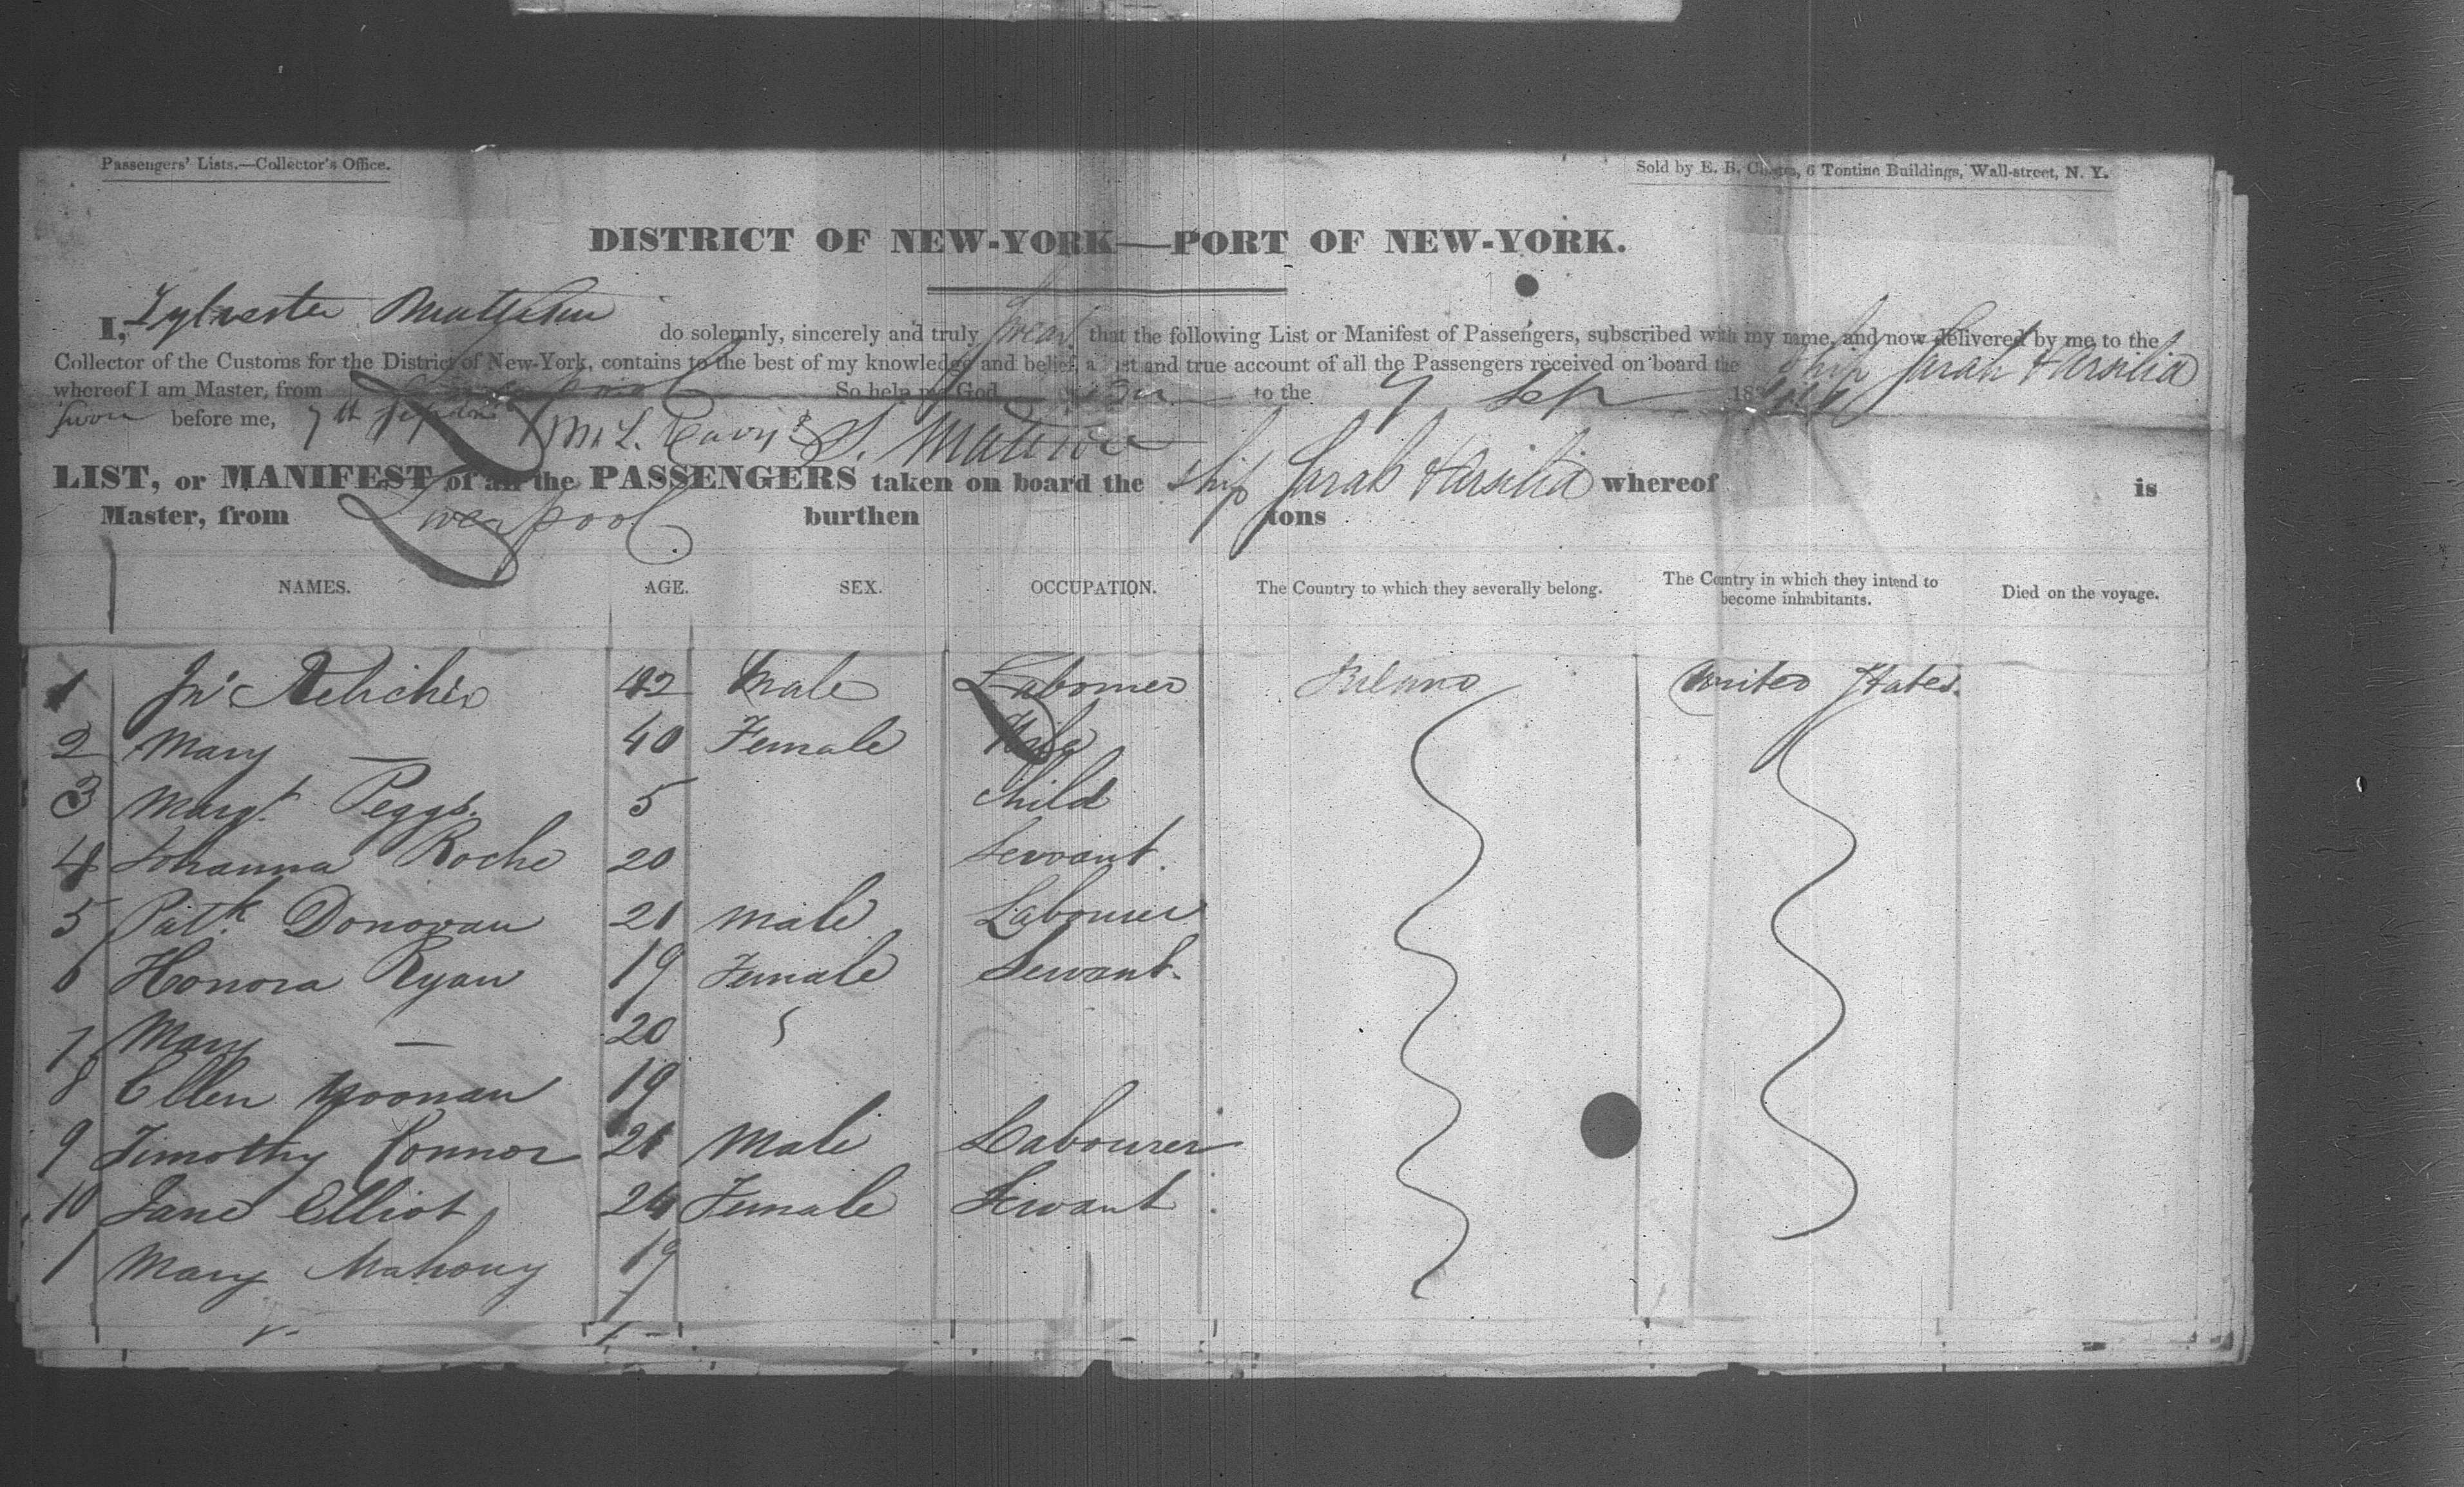 Passengers' Lists.—Collector's Office.
Sold by E. B. 6 Tontine Buildings, Wall-street, N. Y.
DISTRICT OF NEW-YORK—PORT OF NEW-YORK.
I, Sylvester do solemnly, sincerely and truly swear that the following List or Manifest of Passengers, subscribed with my name, and now delivered by me to the
Collector of the Customs for the District of New-York, contains to the best of my knowledge and belief, a just and true account of all the Passengers received on board the Ship Sarah & Arsilia
whereof I am Master, from Liverpool So help me God. to the 7 Sep 18
Sworn before me, 7th S.
LIST, or MANIFEST of all the PASSENGERS taken on board the Ship Sarah & Arsilia whereof is
Master, from Liverpool burthen tons
NAMES. AGE. SEX. OCCUPATION. The Country to which they severally belong. The Country in which they intend to become inhabitants. Died on the voyage.
1 Jno 42 Male Labourer Ireland United States.
2 Mary — 40 Female Wife
3 Margt. Peggs. 5 Child
4 Johanna Roche 20 Servant.
5 Patk. Donovan 21 Male Labourer
6 Honora Ryan 19 Female Servant.
7 Mary — 20
8 Ellen Noonan 19
9 Timothy Connor 21 Male Labourer
10 Jane Elliot 24 Female Servant
1 Mary Mahony 19